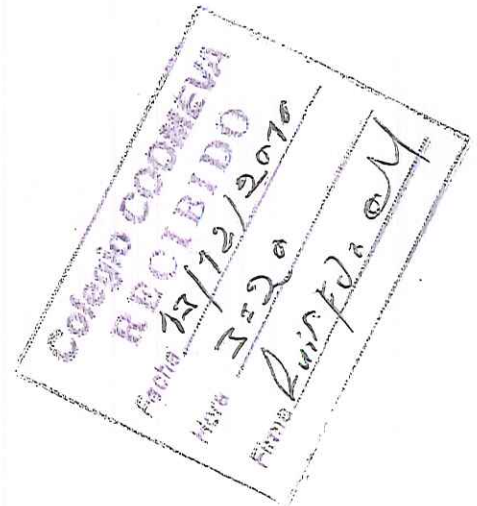 Colegio COOMEVA
RECIBIDO
Fecha 13/12/2010
Hora 3:20
Firma